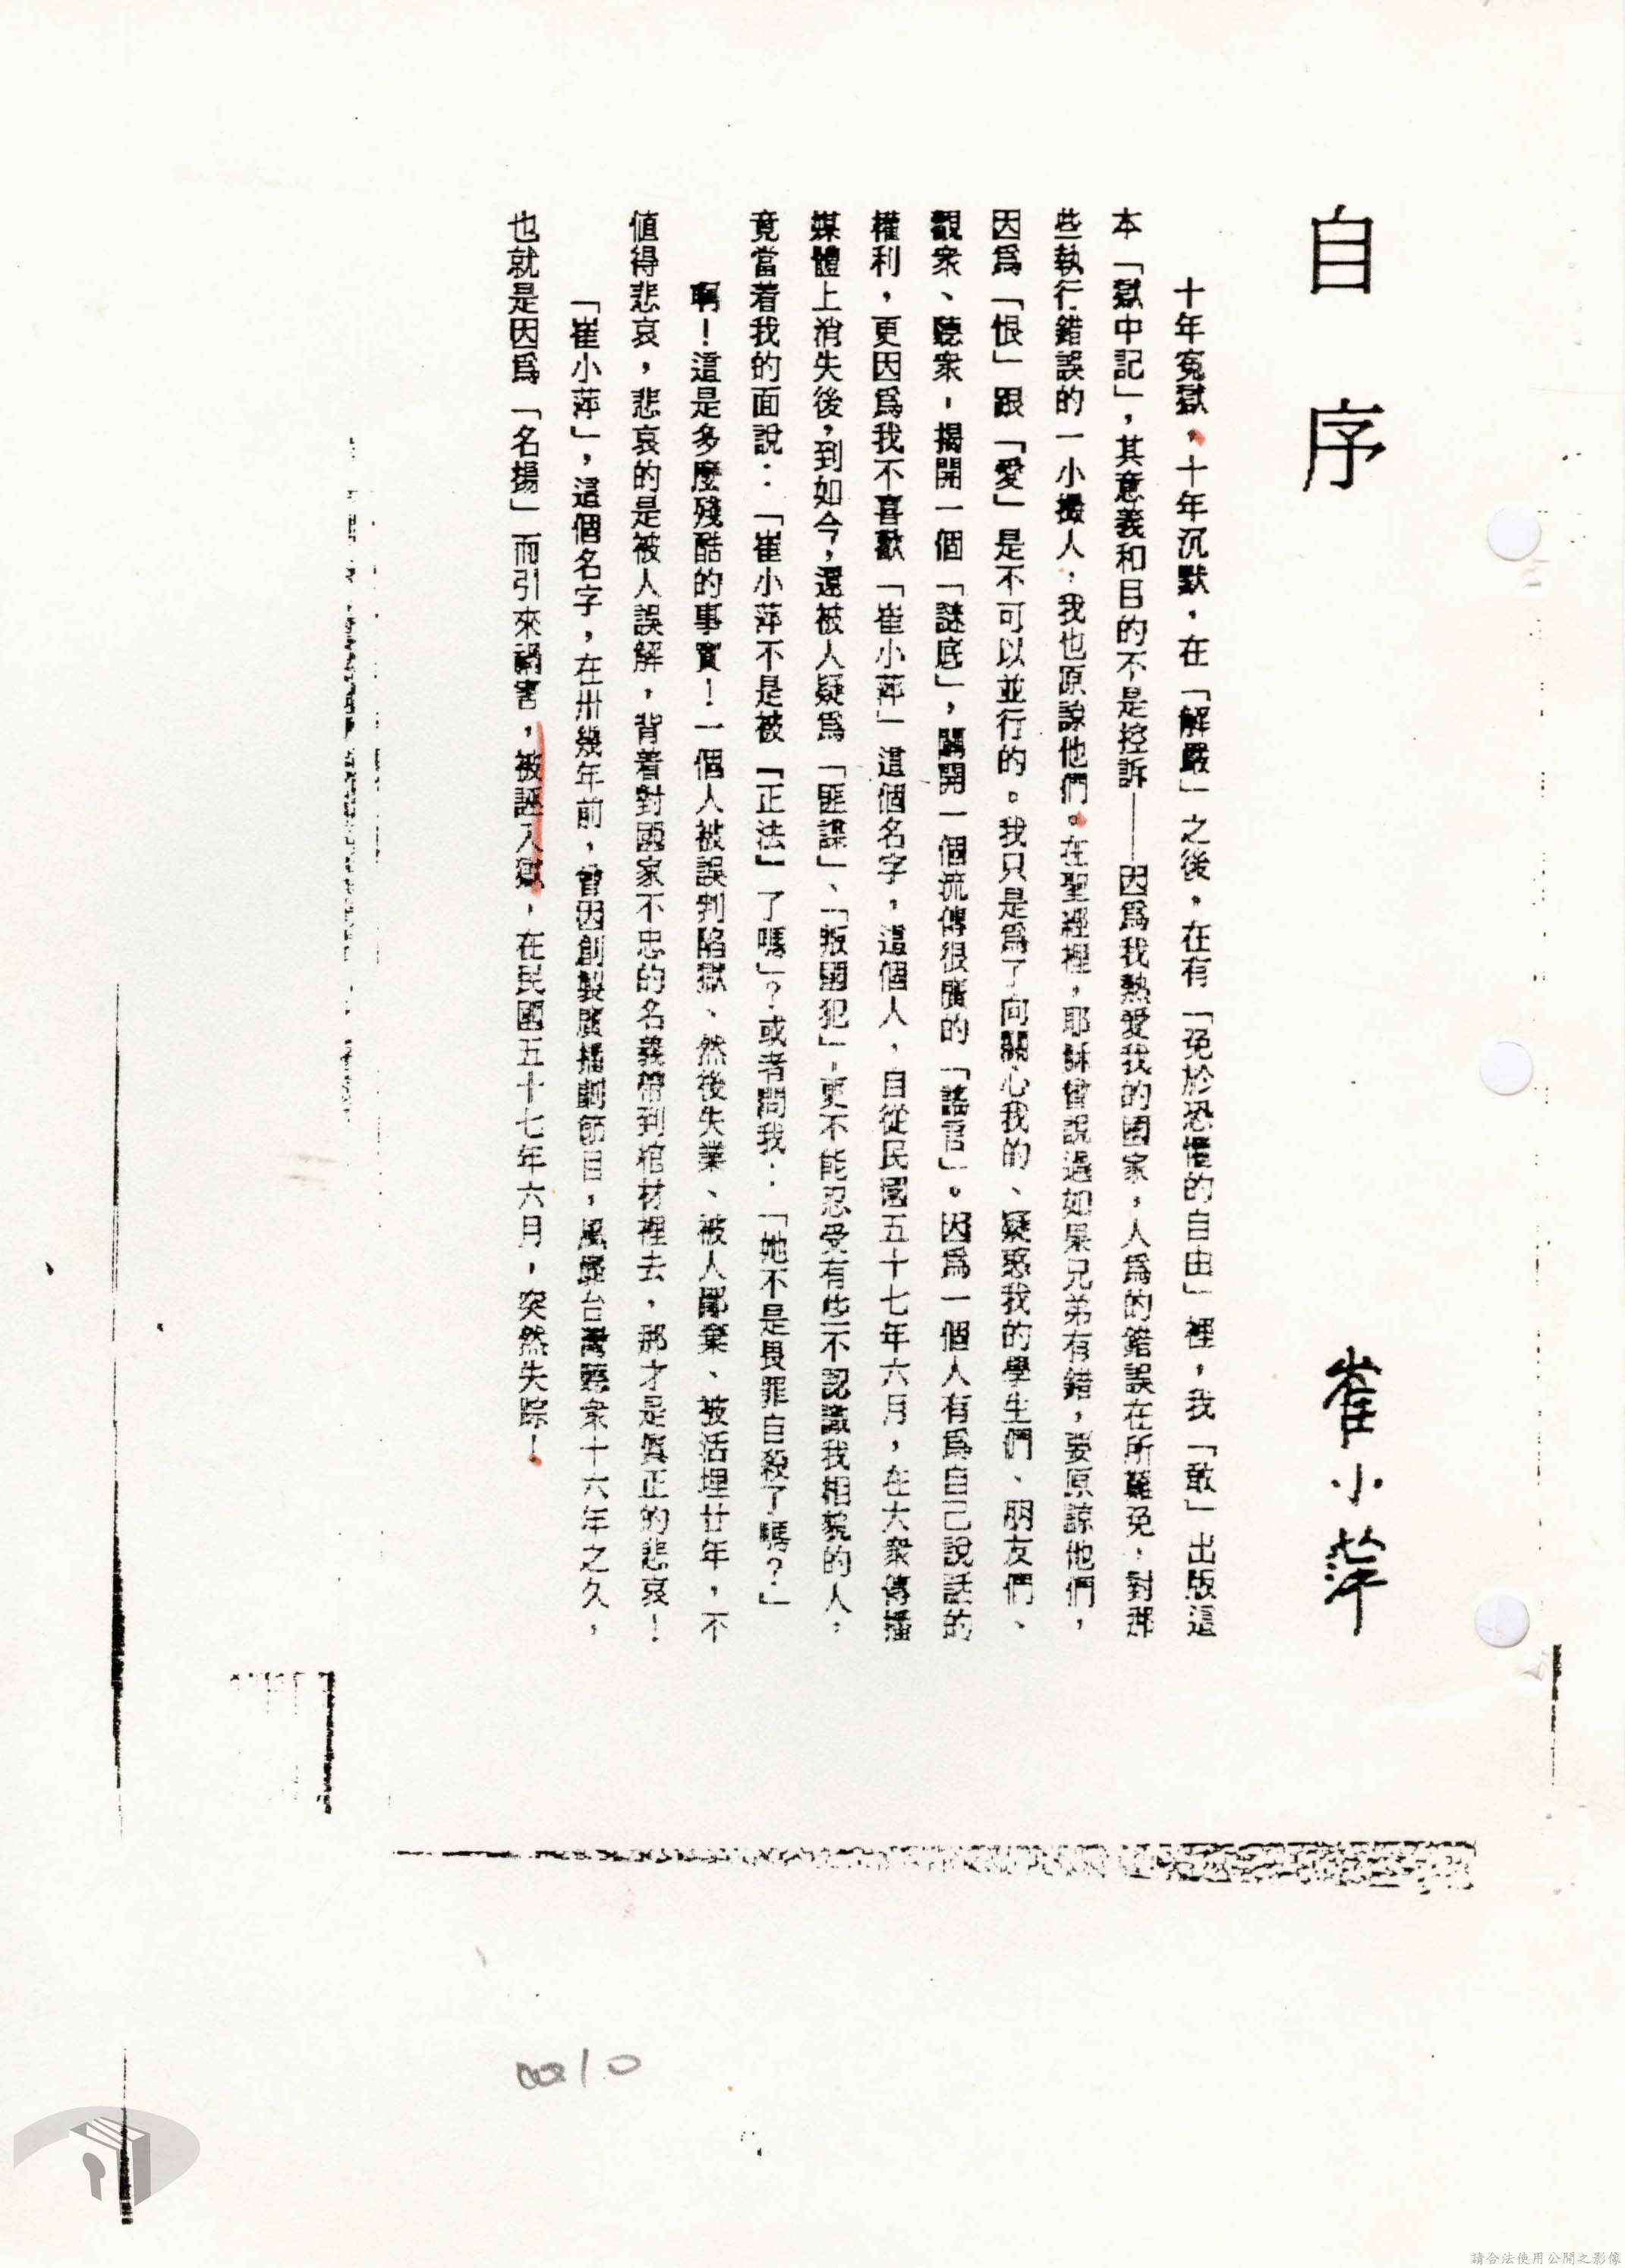 自序
崔小萍
十年寃獄，十年沉默，在「解嚴」之後，在有「免於恐懼的自由」裡，我「敢」出版這
本「獄中記」，其意義和目的不是控訴——因爲我熱愛我的國家，人爲的錯誤在所難免，對那
些執行錯誤的一小撮人，我也原諒他們。在聖經裡，耶穌曾說過如果兄弟有錯，要原諒他們，
因爲「恨」跟「愛」是不可以並行的。我只是爲了向關心我的、疑惑我的學生們、朋友們、
觀衆、聽衆，揭開一個「謎底」，闢開一個流傳很廣的「謠言」。因爲一個人有爲自己說話的
權利，更因爲我不喜歡「崔小萍」這個名字，這個人，自從民國五十七年六月，在大衆傳播
媒體上消失後，到如今，還被人疑爲「匪諜」、「叛國犯」，更不能忍受有些不認識我相貌的人，
竟當着我的面說：「崔小萍不是被『正法』了嗎」？或者問我：「她不是畏罪自殺了嗎？」
啊！這是多麼殘酷的事實！一個人被誤判陷獄、然後失業、被人鄙棄、被活埋廿年，不
值得悲哀，悲哀的是被人誤解，背着對國家不忠的名義帶到棺材裡去，那才是眞正的悲哀！
「崔小萍」，這個名字，在卅幾年前，曾因創製廣播劇節目，風靡台灣聽衆十六年之久，
也就是因爲「名揚」而引來禍害，被誣入獄，在民國五十七年六月，突然失踪！
0010
請合法使用公開之影像